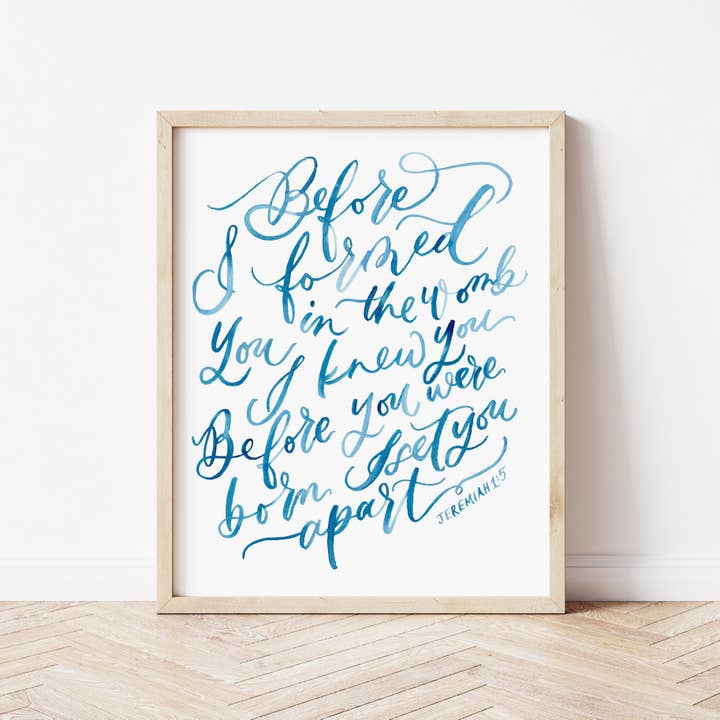 Before
I formed
in the womb
You
I knew you
Before you were
born I set you
apart
JEREMIAH 1:5